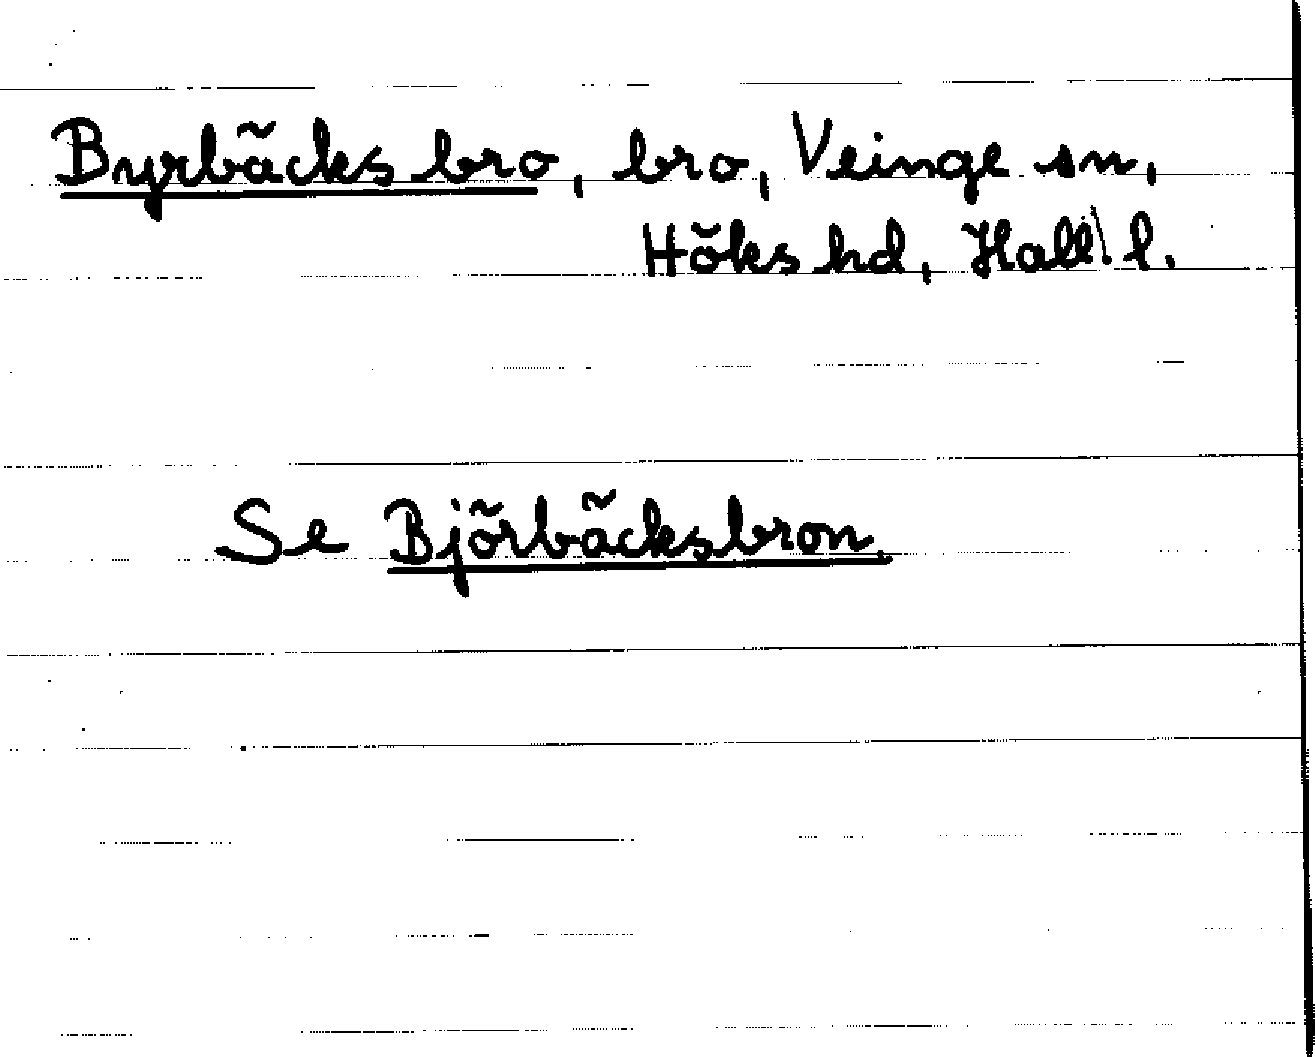 Byrbäcks bro, bro, Veinge sn,
Höks hd, Hall. l.
Se Björbäcksbron.